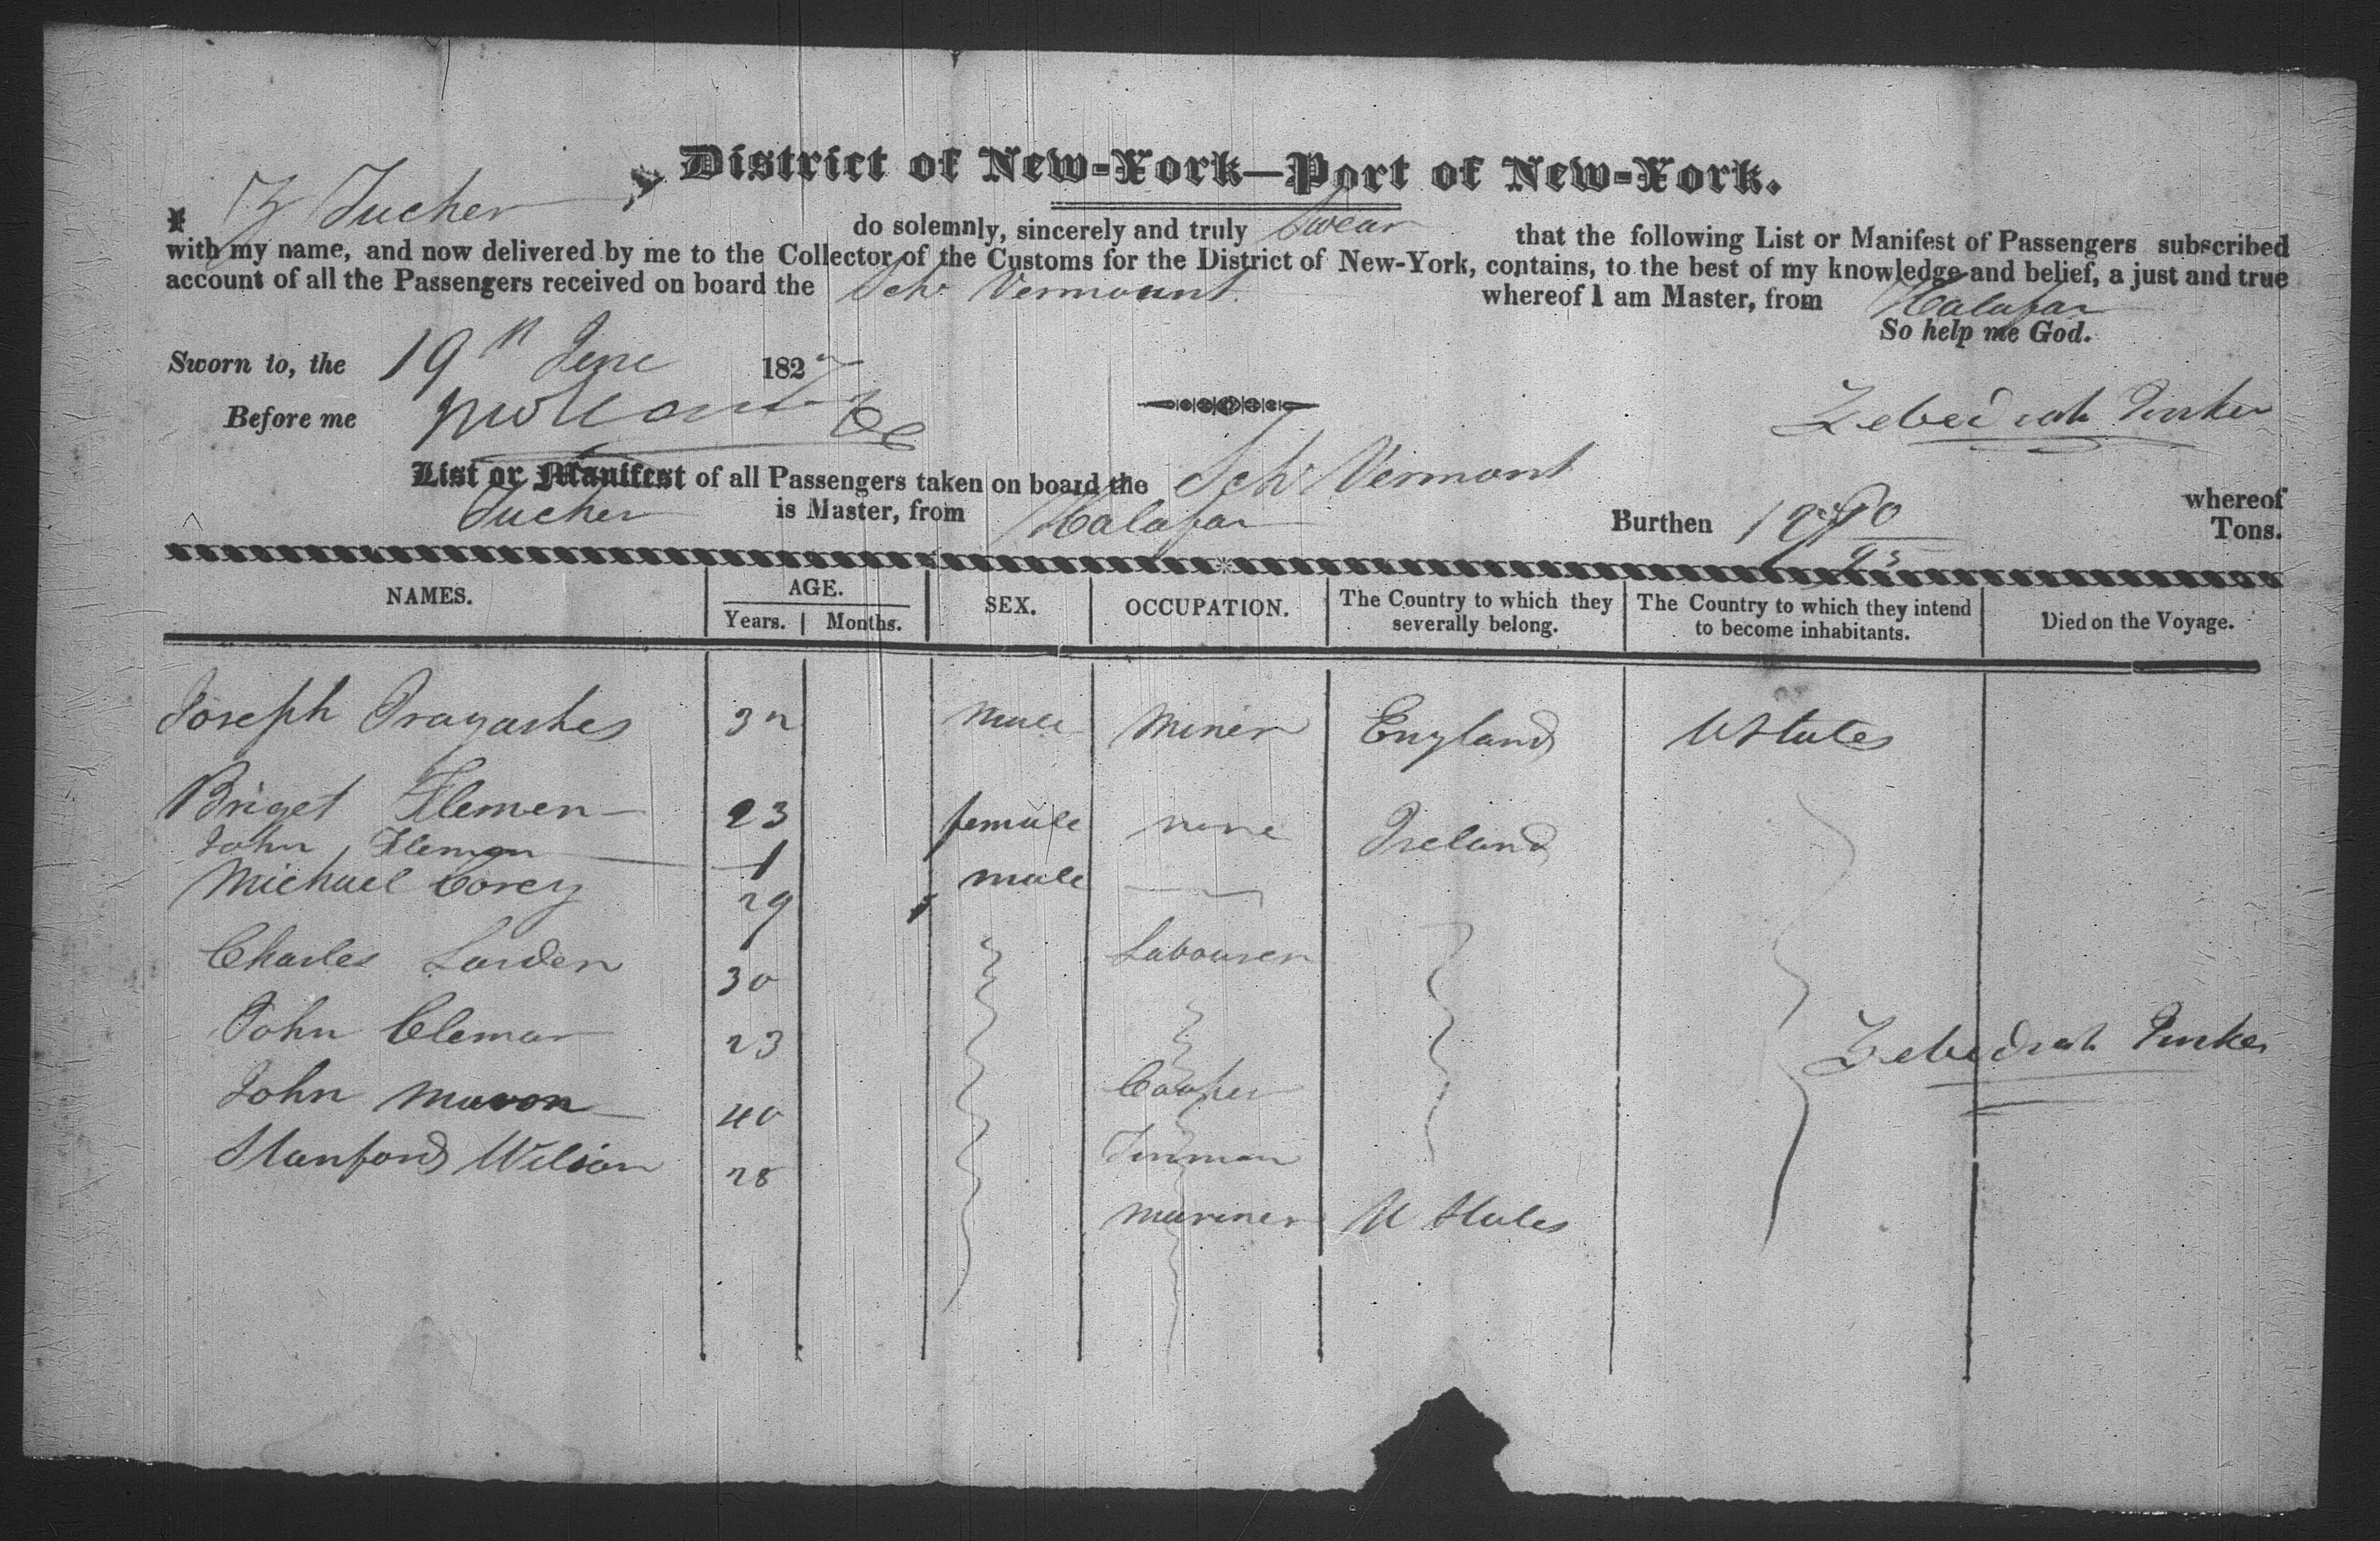 District of New-York—Port of New-York.
I Z Tucker do solemnly, sincerely and truly Swear that the following List or Manifest of Passengers subscribed
with my name, and now delivered by me to the Collector of the Customs for the District of New-York, contains, to the best of my knowledge and belief, a just and true
account of all the Passengers received on board the Schr Vermount whereof I am Master, from Halafax
So help me God.
Sworn to, the 19th June 1827
Before me
Zebediah Tucker
List or Manifest of all Passengers taken on board the Schr Vermont whereof
Tucker is Master, from Halafax Burthen Tons.
NAMES. AGE. SEX. OCCUPATION. The Country to which they severally belong. The Country to which they intend to become inhabitants. Died on the Voyage.
Years. Months.
Joseph 32 male Miner England U States
Briget Flemen 23 female none Ireland
John Flemen 1 male
Michael Corey 29
Charles Larden 30 Labourer
John Clemar 23
John Mavon 40 Cooper
Stanford Wilson 28 Tinman
Mariner U States
Zebediah Tucker